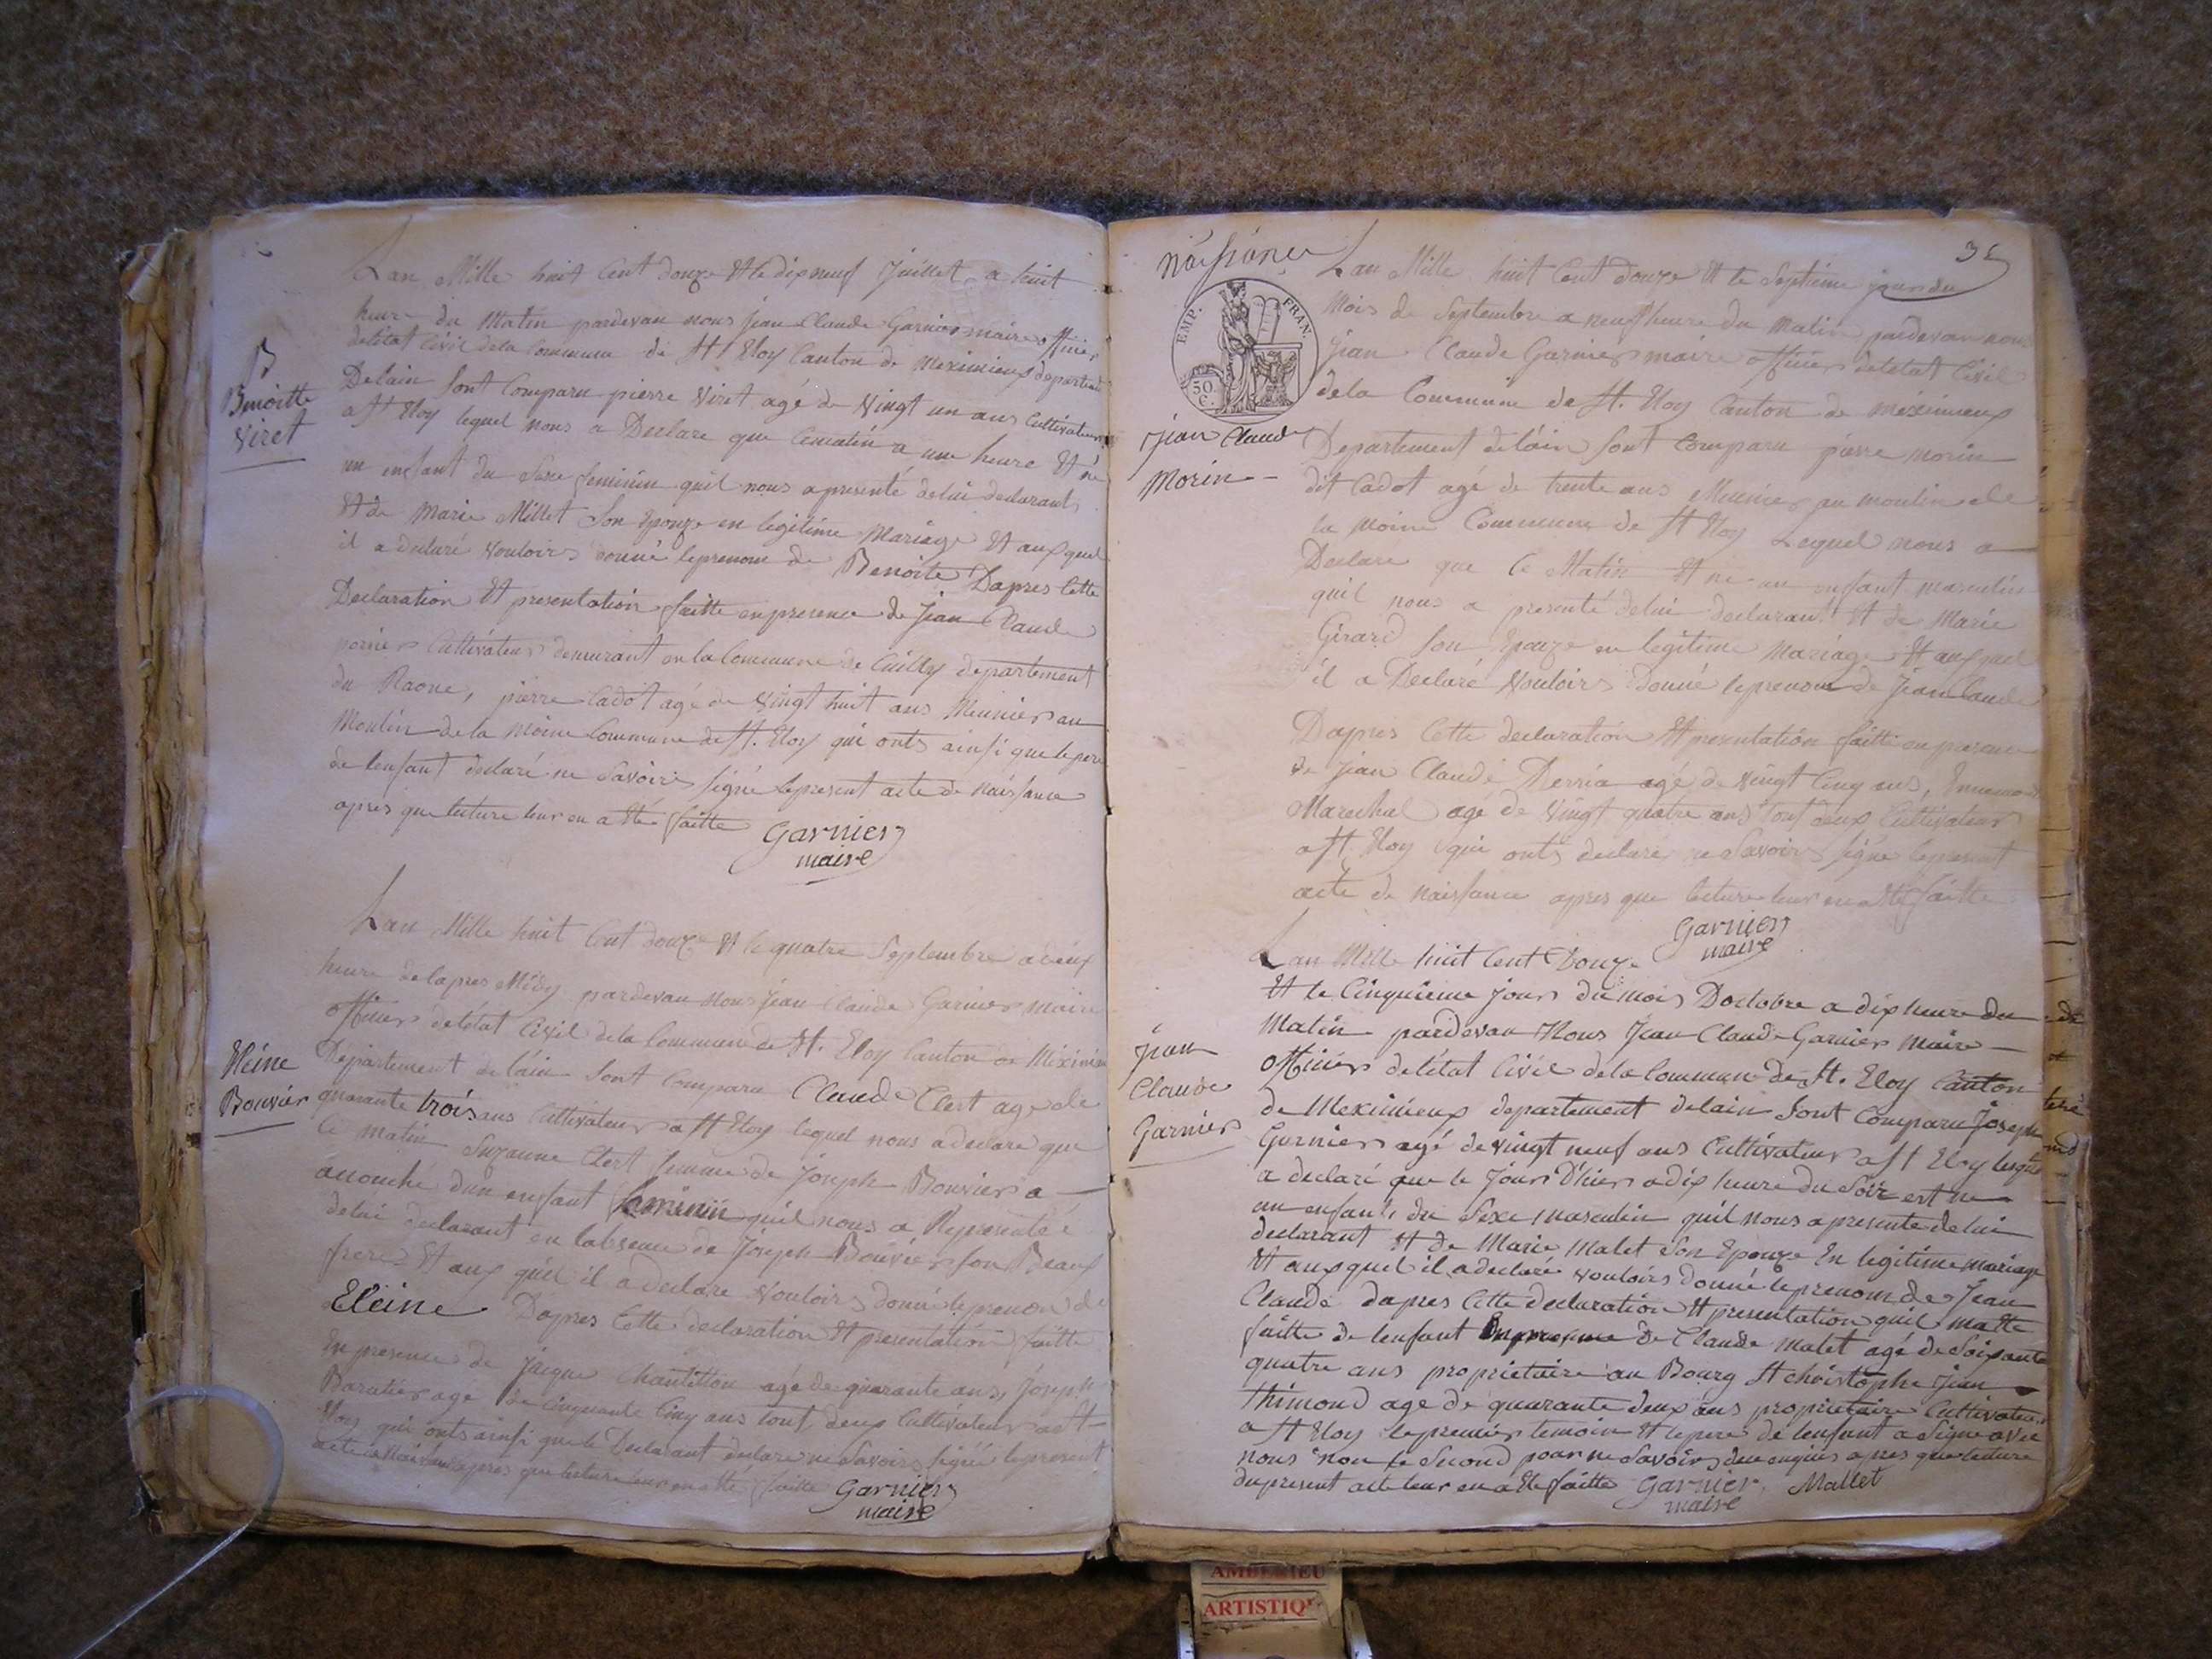 Lan Mille huit Cent douze Et le dix neuf Juillet a huit
heure du Matin pardevan nous jean Claude Garnier maire officier
deletat Civil dela Commune de St Eloy Canton de meximieux departem
Delain Sont Comparu pierre Viret agé de Vingt un ans Cultivateur
a St Eloy lequel nous a Declare que Cematin a une heure Et né
un enfant du Sexe feminin quil nous a presenté delui declarant
Et de Marie Millet Son Epouze en legitime Mariage Et auxquel
il a declaré Vouloir donné leprenom de Benoite Dapres Cette
Declaration Et presentation faitte enpresence de Jean Claude
Cultivateur demeurant en la Commune de Cuilly departement
du Raone, pierre Cadot agé de Vingt huit ans Meunier au
Moulin de la Moine Commune de St. Eloy qui onts ainsi que le pere
de lenfant declaré ne Savoir signé lepresent acte de Naissance
apres que lecture leur en a Eté faitte
Garnier
maire
B
Benoitte
Viret
Lan Mille huit Cent douze Et le quatre Septembre a deux
heure delapres Midy pardevan Nous Jean Claude Garnier Maire
officier deletat Civil de la Commune de St. Eloy Canton de Mexim
Departement de lain Sont Comparu Claude Clert age de
quarante trois ans Cultivateur a St Eloy lequel nous a declare que
Ce matin Suzanne Clert femme de Joseph Bouvier a
acouché dun enfant feminin quil nous a Represente
delui declarant en labsence de Joseph Bouvier son Beaux
frere Et aux quel il a declare Vouloir donné leprenom de
Eleine Dapres Cette declaration Et presentation faitte
En presence de Jacque Chantillon agé de quarante ans, Joseph
Baratier age de cinquante Cinq ans tout deux Cultivateur a St
Eloy qui onts ainsi que le Declarant declare ne Savoir signé lepresent
acte de Naissance apres que lecture leur en a Eté faitte
Garnier
maire
Heine
Bouvier
Naissance
35
EMP. FRAN.
50 C.
Lan Mille huit Cent douze Et le Septieme jour du
Mois de Septembre a neuf heure du Matin pardevan nous
Jean Claude Garnier maire officier deletat Civil
dela Commune de St. Eloy Canton de meximieux
Departement delain Sont Comparu pierre morin
dit Cadot agé de trente ans Meunier au moulin de
la Moine Commune de St Eloy Lequel nous a
Declare que Ce Matin Et né un enfant masculin
quil nous a presenté delui declarant Et de Marie
Girard Son Epouze en legitime Mariage Et auxquel
il a Declaré Vouloir donné leprenom de Jean Claude
Dapres Cette declaration Et presentation faitte en presence
de Jean Claude Derria agé de Vingt Cinq ans,
Marechal agé de Vingt quatre ans tout deux Cultivateur
a St Eloy qui onts declaré ne Savoir signé lepresent
acte de Naissance apres que lecture leur en a Eté faitte
Garnier
maire
jean Claude
Morin
Lan Mille huit Cent Douze
Et le Cinquieme Jour du mois Doctobre a dix heure du
Matin pardevan Nous Jean Claude Garnier Maire
officier deletat Civil dela Commune De St. Eloy Canton
de Meximieux departement delain Sont Comparu Joseph
Garnier agé de vingt neuf ans Cultivateur a St Eloy lequel
a declaré que le Jour D'hier a dix heure du Soir est né
un enfant du Sexe masculin quil nous a presente de lui
declarant Et de Marie Malet Son Epouze En legitime mariage
Et auxquel il a declaré vouloir donné leprenom de Jean
Claude dapres Cette declaration Et presentation quil matte
faitte de lenfant Enpresence de Claude Malet agé de Soixante
quatre ans proprietaire au Bourg St christophe Jean
Thimond age de quarante deux ans proprietaire Cultivateur
a St Eloy le premier temoin Et lepere de lenfant a Signe avec
nous non le Second pour ne Savoir dece enquis apres que lecture
dupresent acte leur en a Eté faitte Garnier. Mallet
maire
jean
Claude
Garnier
AMBERIEU
ARTISTIQ